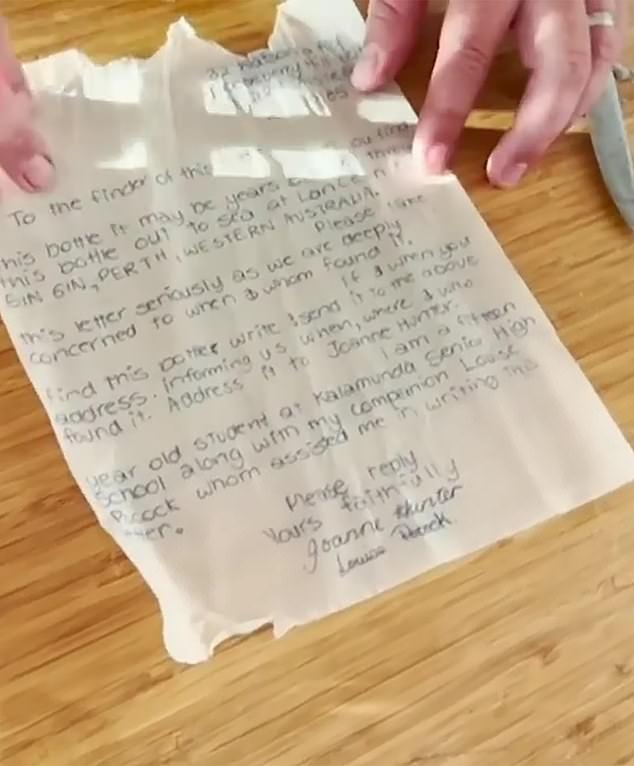 To the finder of this
this bottle it may be years
this bottle out to sea at Lance
GIN GIN, PERTH, WESTERN AUSTRALIA.
Please take
this letter seriously as we are deeply
concerned to when & whom found it.
If & when you
find this bottle write & send it to the above
address. Informing us when, where & who
found it. Address it to Joanne Hunter.
I am a fifteen
year old student at Kalamunda Senior High
School along with my companion Louise
Pocock whom assisted me in writing this
letter.
Please reply
Yours faithfully
Joanne Hunter
Louise Pocock.